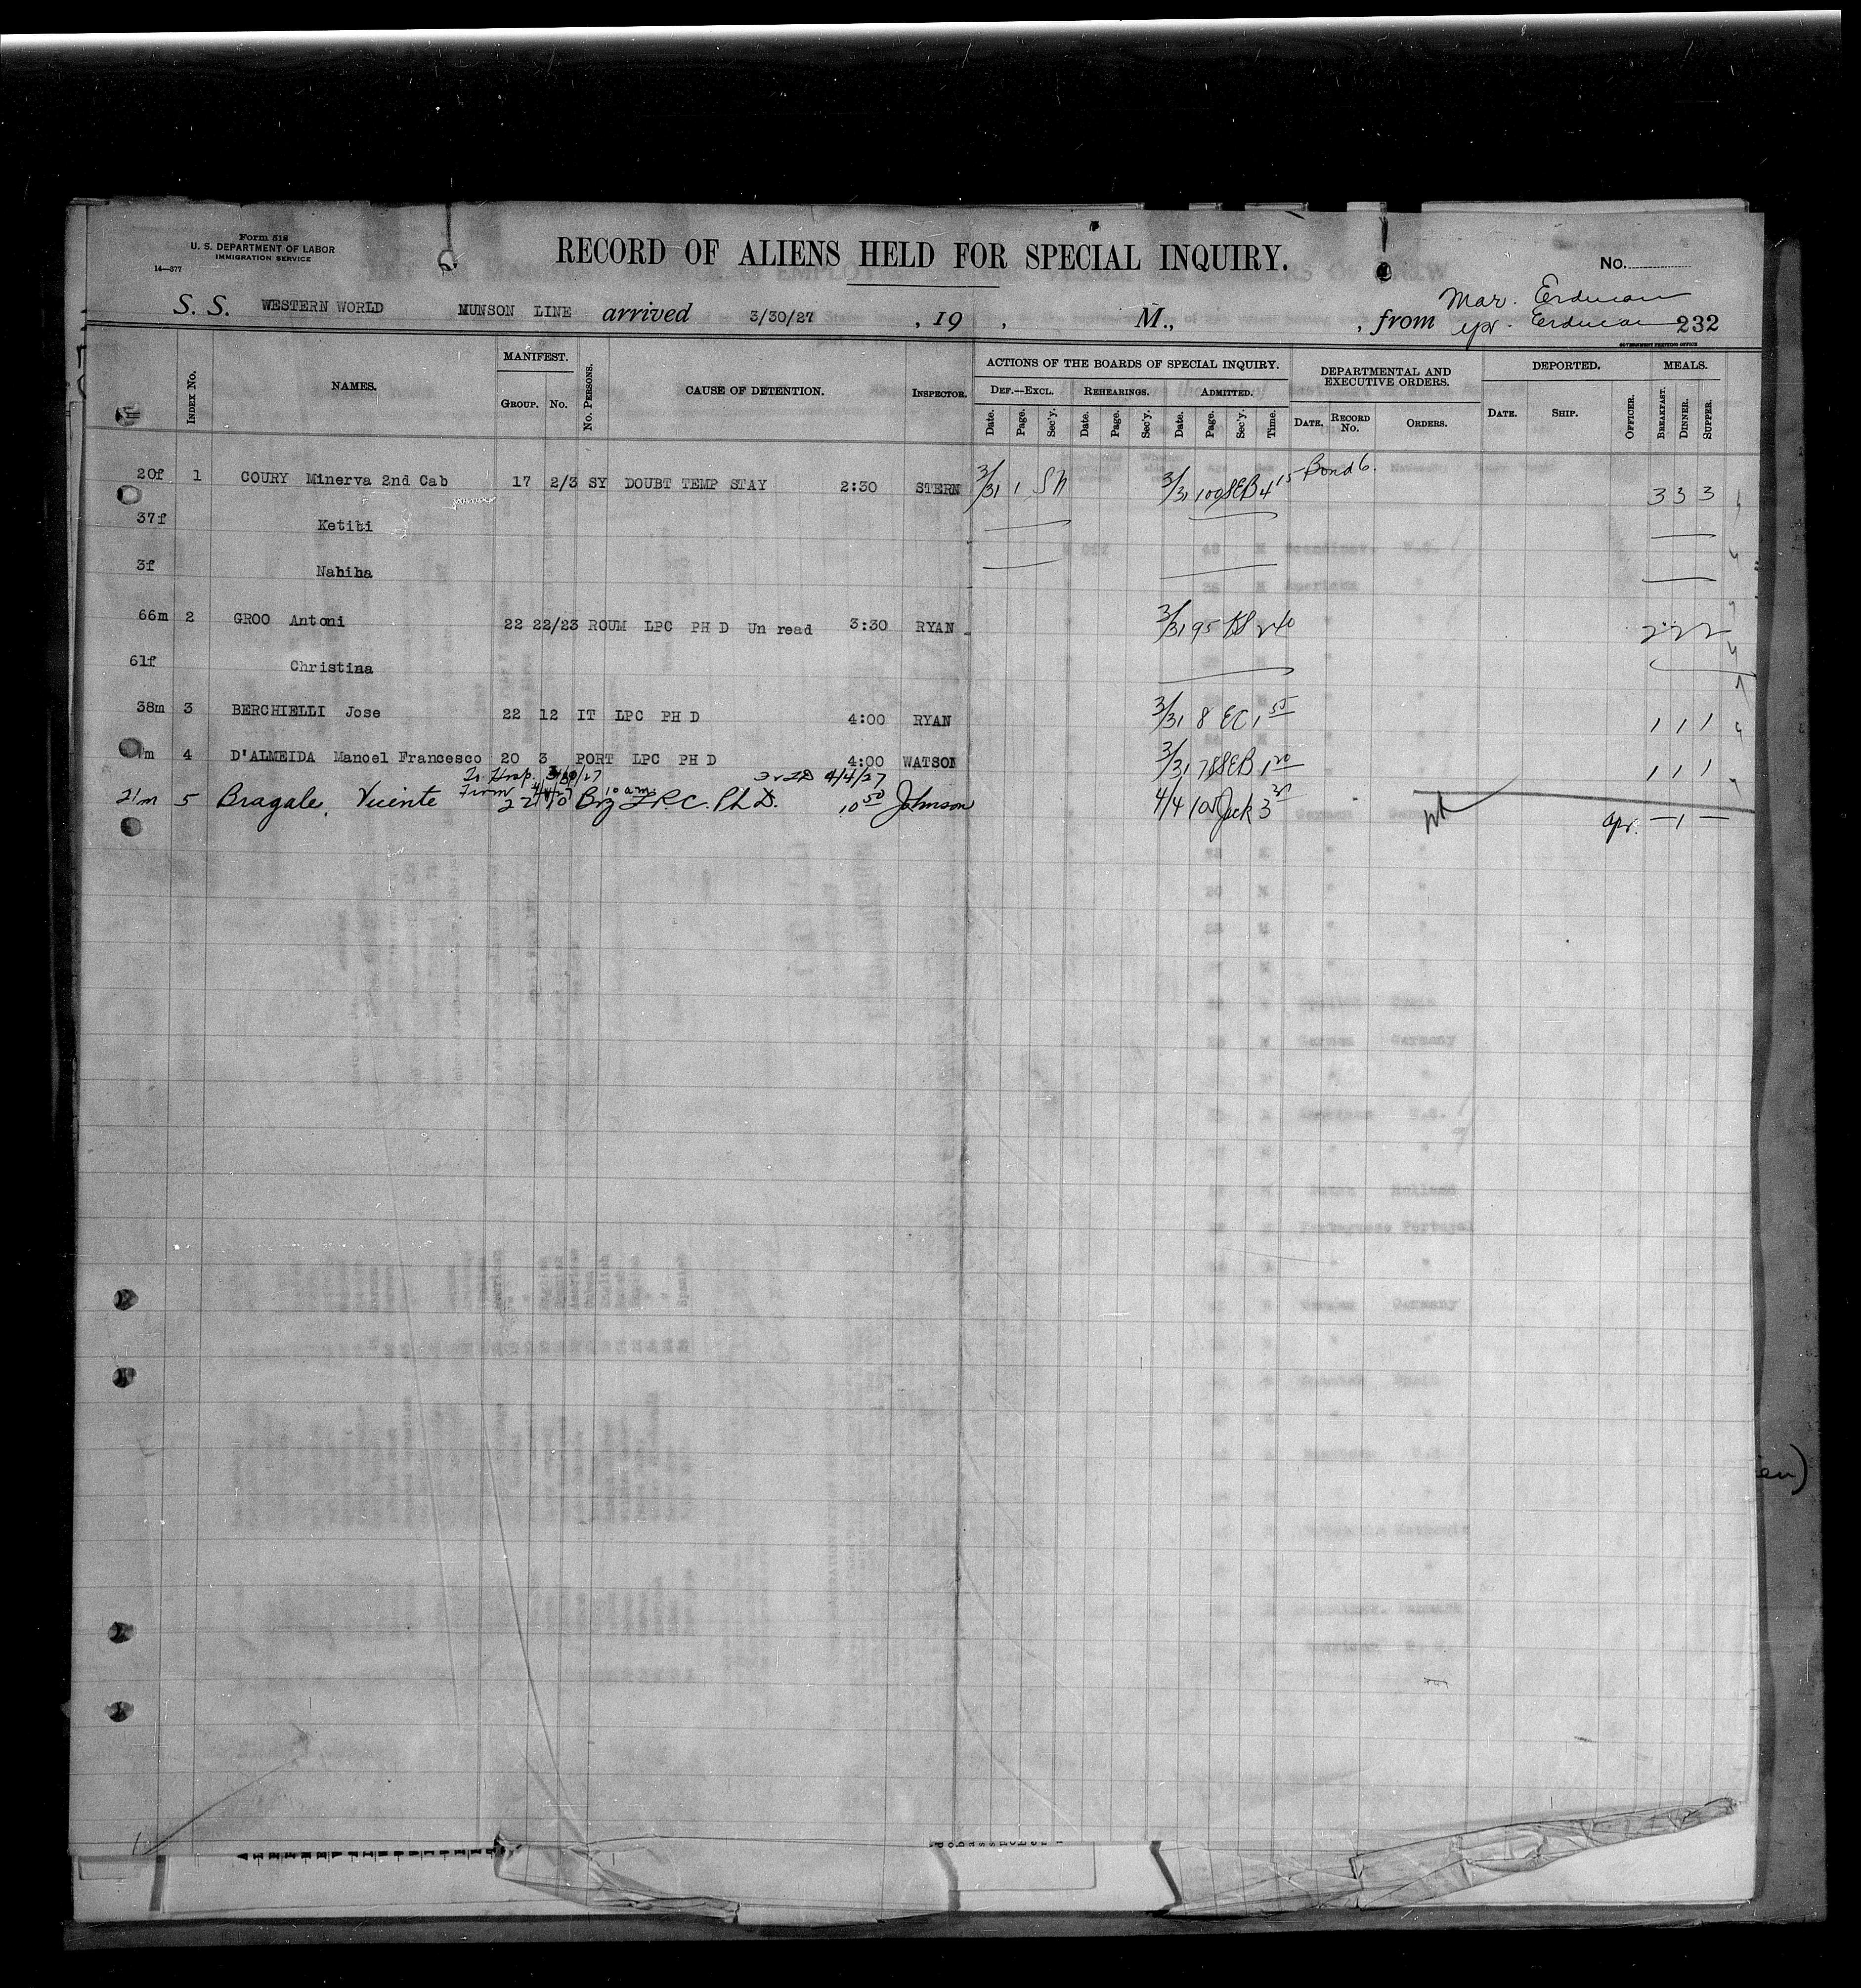 Form 518
U. S. DEPARTMENT OF LABOR
IMMIGRATION SERVICE
14—377
RECORD OF ALIENS HELD FOR SPECIAL INQUIRY.
No.
S. S. WESTERN WORLD MUNSON LINE arrived 3/30/27 , 19 , M., , from Mar. Erdman
Apr. Erdman 232
GOVERNMENT PRINTING OFFICE
INDEX No. NAMES. MANIFEST. GROUP. No. No. PERSONS. CAUSE OF DETENTION. INSPECTOR. ACTIONS OF THE BOARDS OF SPECIAL INQUIRY. DEPARTMENTAL AND EXECUTIVE ORDERS. DEPORTED. MEALS.
DEF.—EXCL. REHEARINGS. ADMITTED.
Date. Page. Sec'y. Date. Page. Sec'y. Date. Page. Sec'y. Time. DATE. RECORD No. ORDERS. DATE. SHIP. OFFICER. BREAKFAST. DINNER. SUPPER.
20f 1 COURY Minerva 2nd Cab 17 2/3 SY DOUBT TEMP STAY 2:30 STERN 3/31 1 Sh 3/31 109 SEB 4 15 Bond 6. 3 3 3
37f Ketibi
3f Nahiha
66m 2 GROO Antoni 22 22/23 ROUM LPC PH D Un read 3:30 RYAN 3/31 95 2 40 2 2 2
61f Christina
38m 3 BERCHIELLI Jose 22 12 IT LPC PH D 4:00 RYAN 3/31 8 EC 1 50 1 1 1
m 4 D'ALMEIDA Manoel Francesco 20 3 PORT LPC PH D 4:00 WATSON 3/31 78 SEB 1 20 1 1 1
To Hosp. 3/30/27 4/4/27
From 10 am
21m 5 Bragale, Vicente 22 10 Brz L.P.C. Ph D. 10 50 Johnson 4/4 105 Jeck 3 Apr. — 1 —